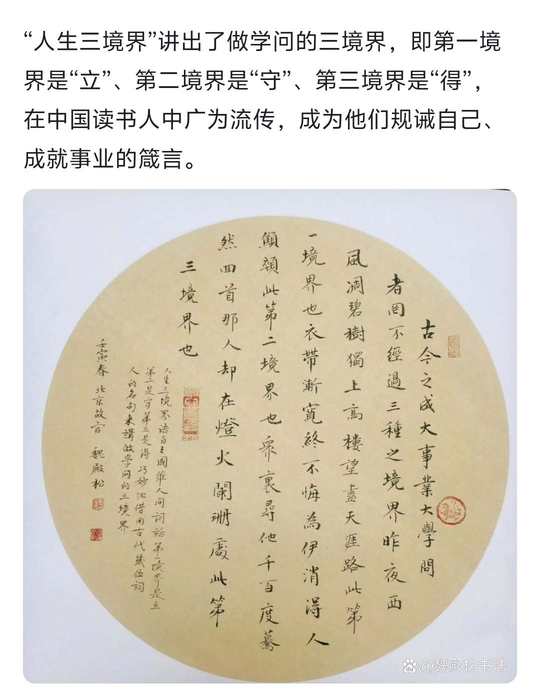 “人生三境界”讲出了做学问的三境界，即第一境
界是“立”、第二境界是“守”、第三境界是“得”，
在中国读书人中广为流传，成为他们规诫自己、
成就事业的箴言。
古今之成大事業大學問
者罔不經過三種之境界昨夜西
風凋碧樹獨上高樓望盡天涯路此第
一境界也衣帶漸寬終不悔為伊消得人
顦顇此第二境界也衆裏尋他千百度驀
然回首那人却在燈火闌珊處此第
三境界也
人生三境界語自王國維人間詞話第一境界是立
第二是守第三是得巧妙地借用古代幾位詞
人的名句來講做學問的三境界
壬寅春北京故宮魏殿松